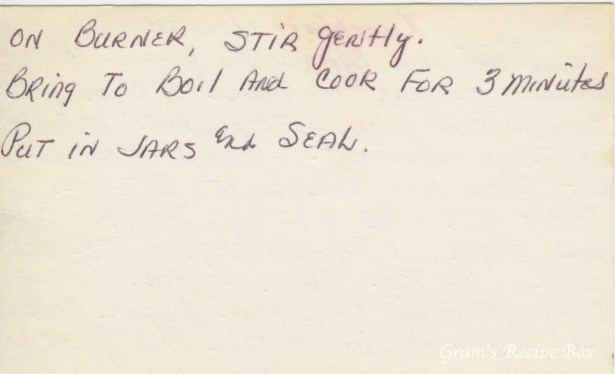 ON BURNER, STIR gently.
Bring To Boil And Cook FOR 3 Minutes
PUT IN JARS and SEAL.
Gram's Recipe Box